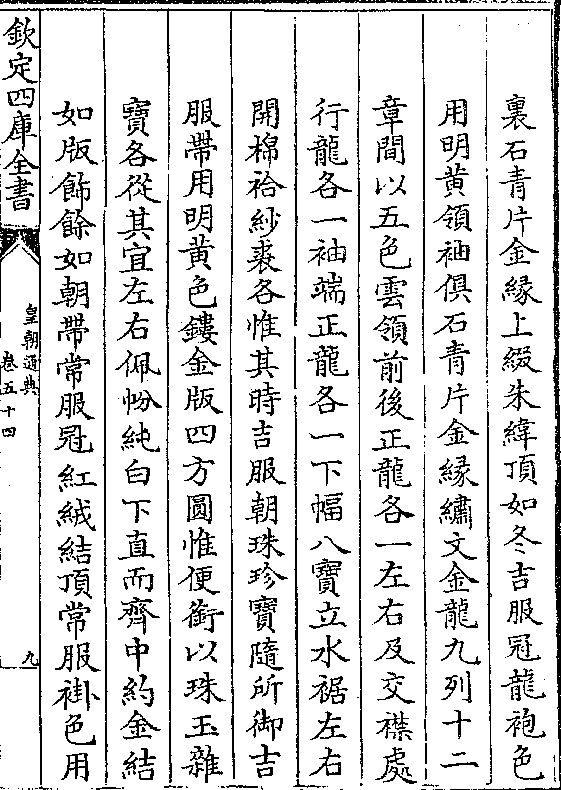 裏石青片金縁上綴朱緯頂如冬吉服冠龍袍色
用明黄領袖俱石青片金縁繡文金龍九列十二
章間以五色雲領前後正龍各一左右及交襟處
行龍各一袖端正龍各一下幅八寶立水裾左右
開棉袷紗裘各惟其時吉服朝珠珍寶隨所御吉
服帶用明黄色鏤金版四方圓惟便銜以珠玉雜
寶各從其宜左右佩帉純白下直而齊中約金結
如版飾餘如朝帶常服冠紅絨結頂常服褂色用
欽定四庫全書
皇朝通典
卷五十四
九